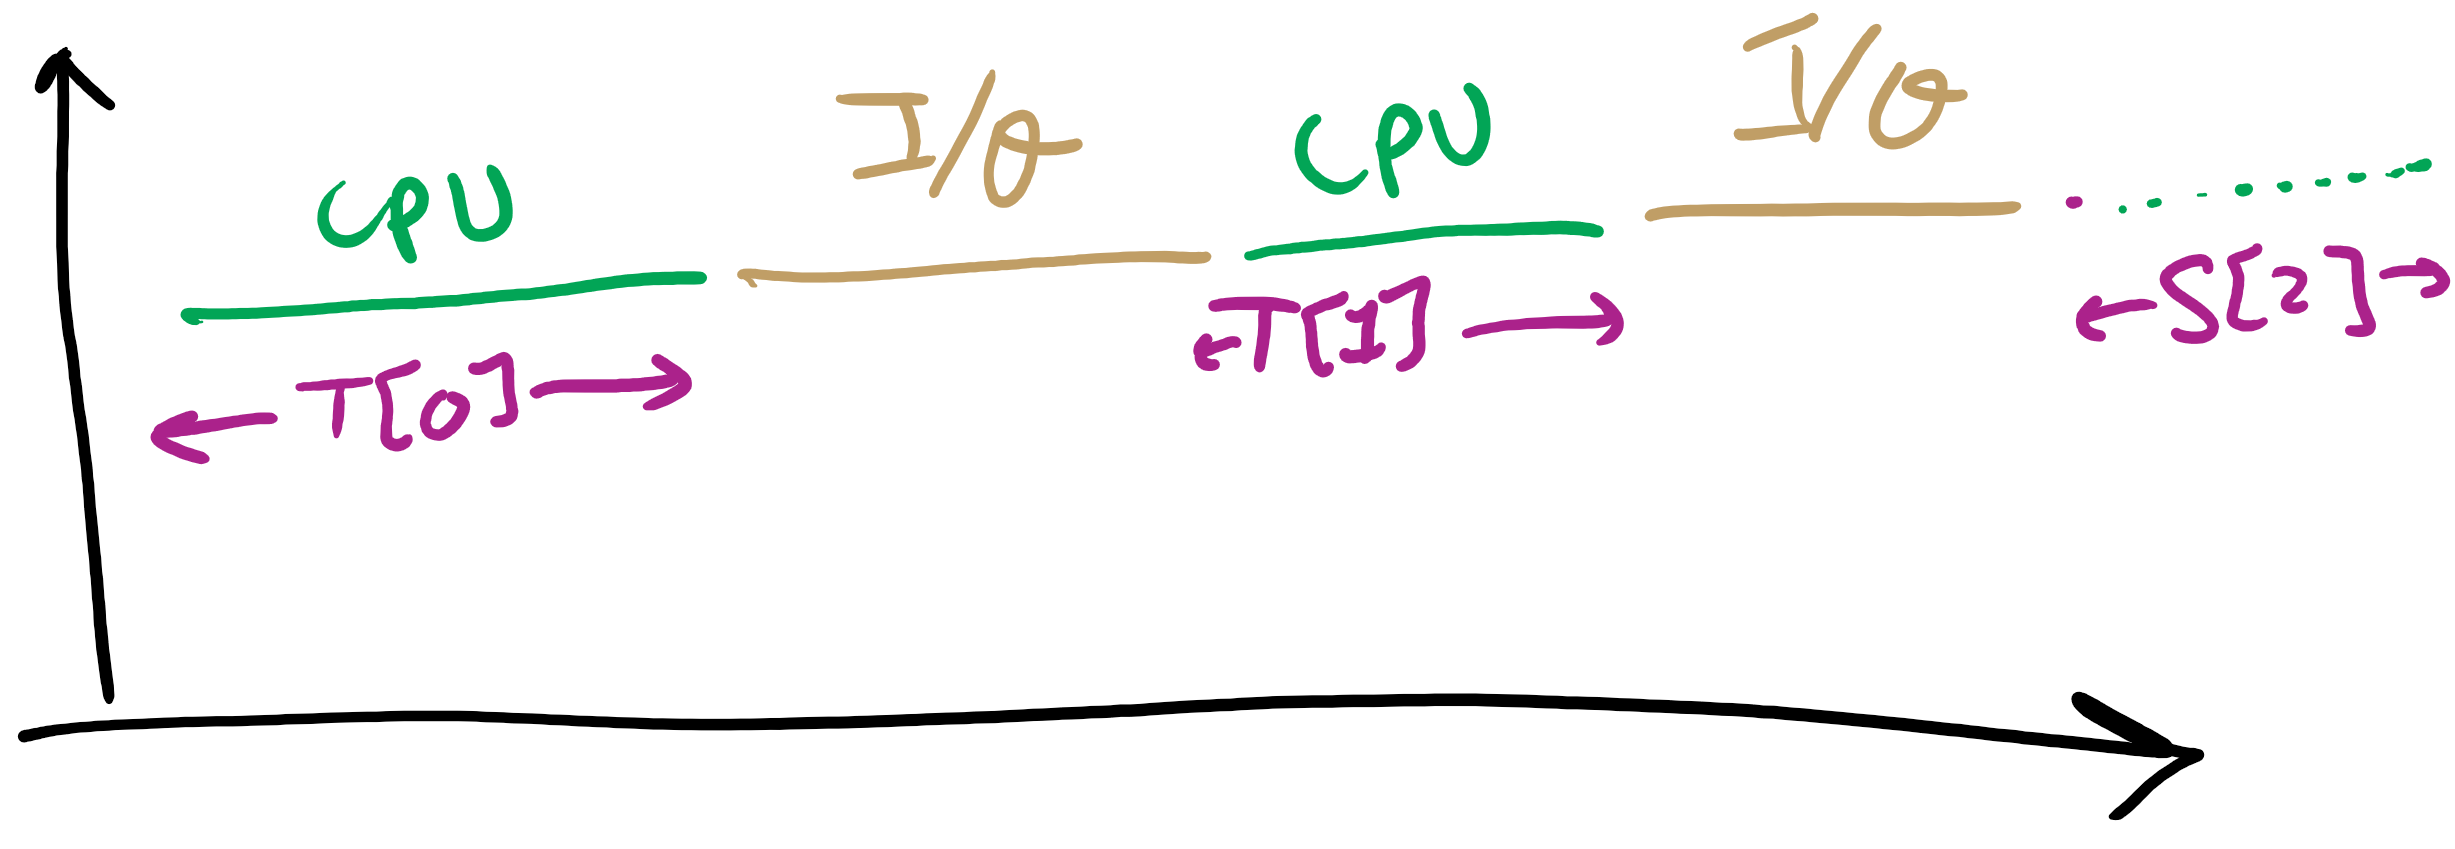 CPU
I/O
CPU
I/O
T[0]
T[1]
S[2]